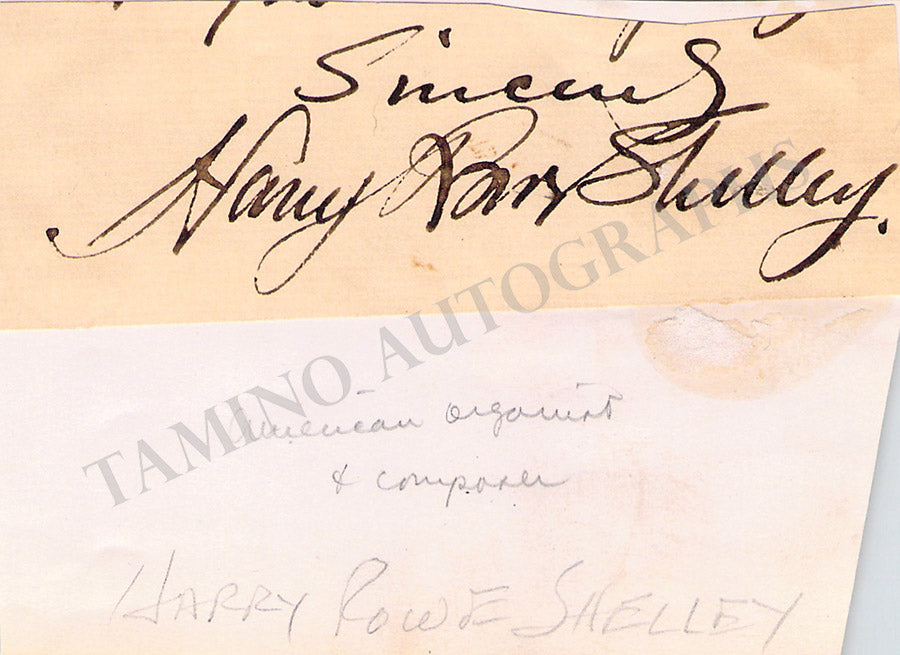 Sincerely
Harry Rowe Shelley.
TAMINO AUTOGRAPHS
American organist
& composer
HARRY ROWE SHELLEY